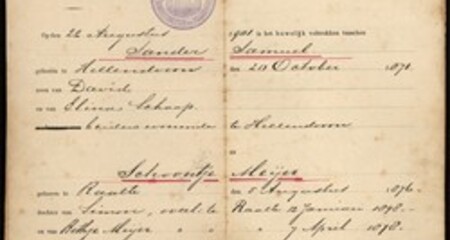 Op den 22 Augustus 1901 is het huwelijk voltrokken tusschen
Sander Samuel
geboren te Hellendoorn den 20 October 1871.
zoon van David
en van Elina Schaap.
beiden wonende te Hellendoorn
en
Schoontje Meijer
geboren te Raalte den 8 Augustus 1876.
dochter van Simon, overl. te Raalte 12 Januari 1898.
en van Betje Meijer " " " 7 April 1898.